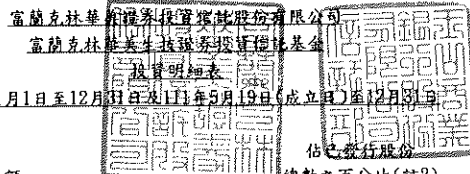 富蘭克林華美證券投資信託股份有限公司
富蘭克林華美生技證券投資信託基金
投資明細表
月1日至12月31日及111年5月19日(成立日)至12月31日
佔已發行股份
總數之百分比(註2)